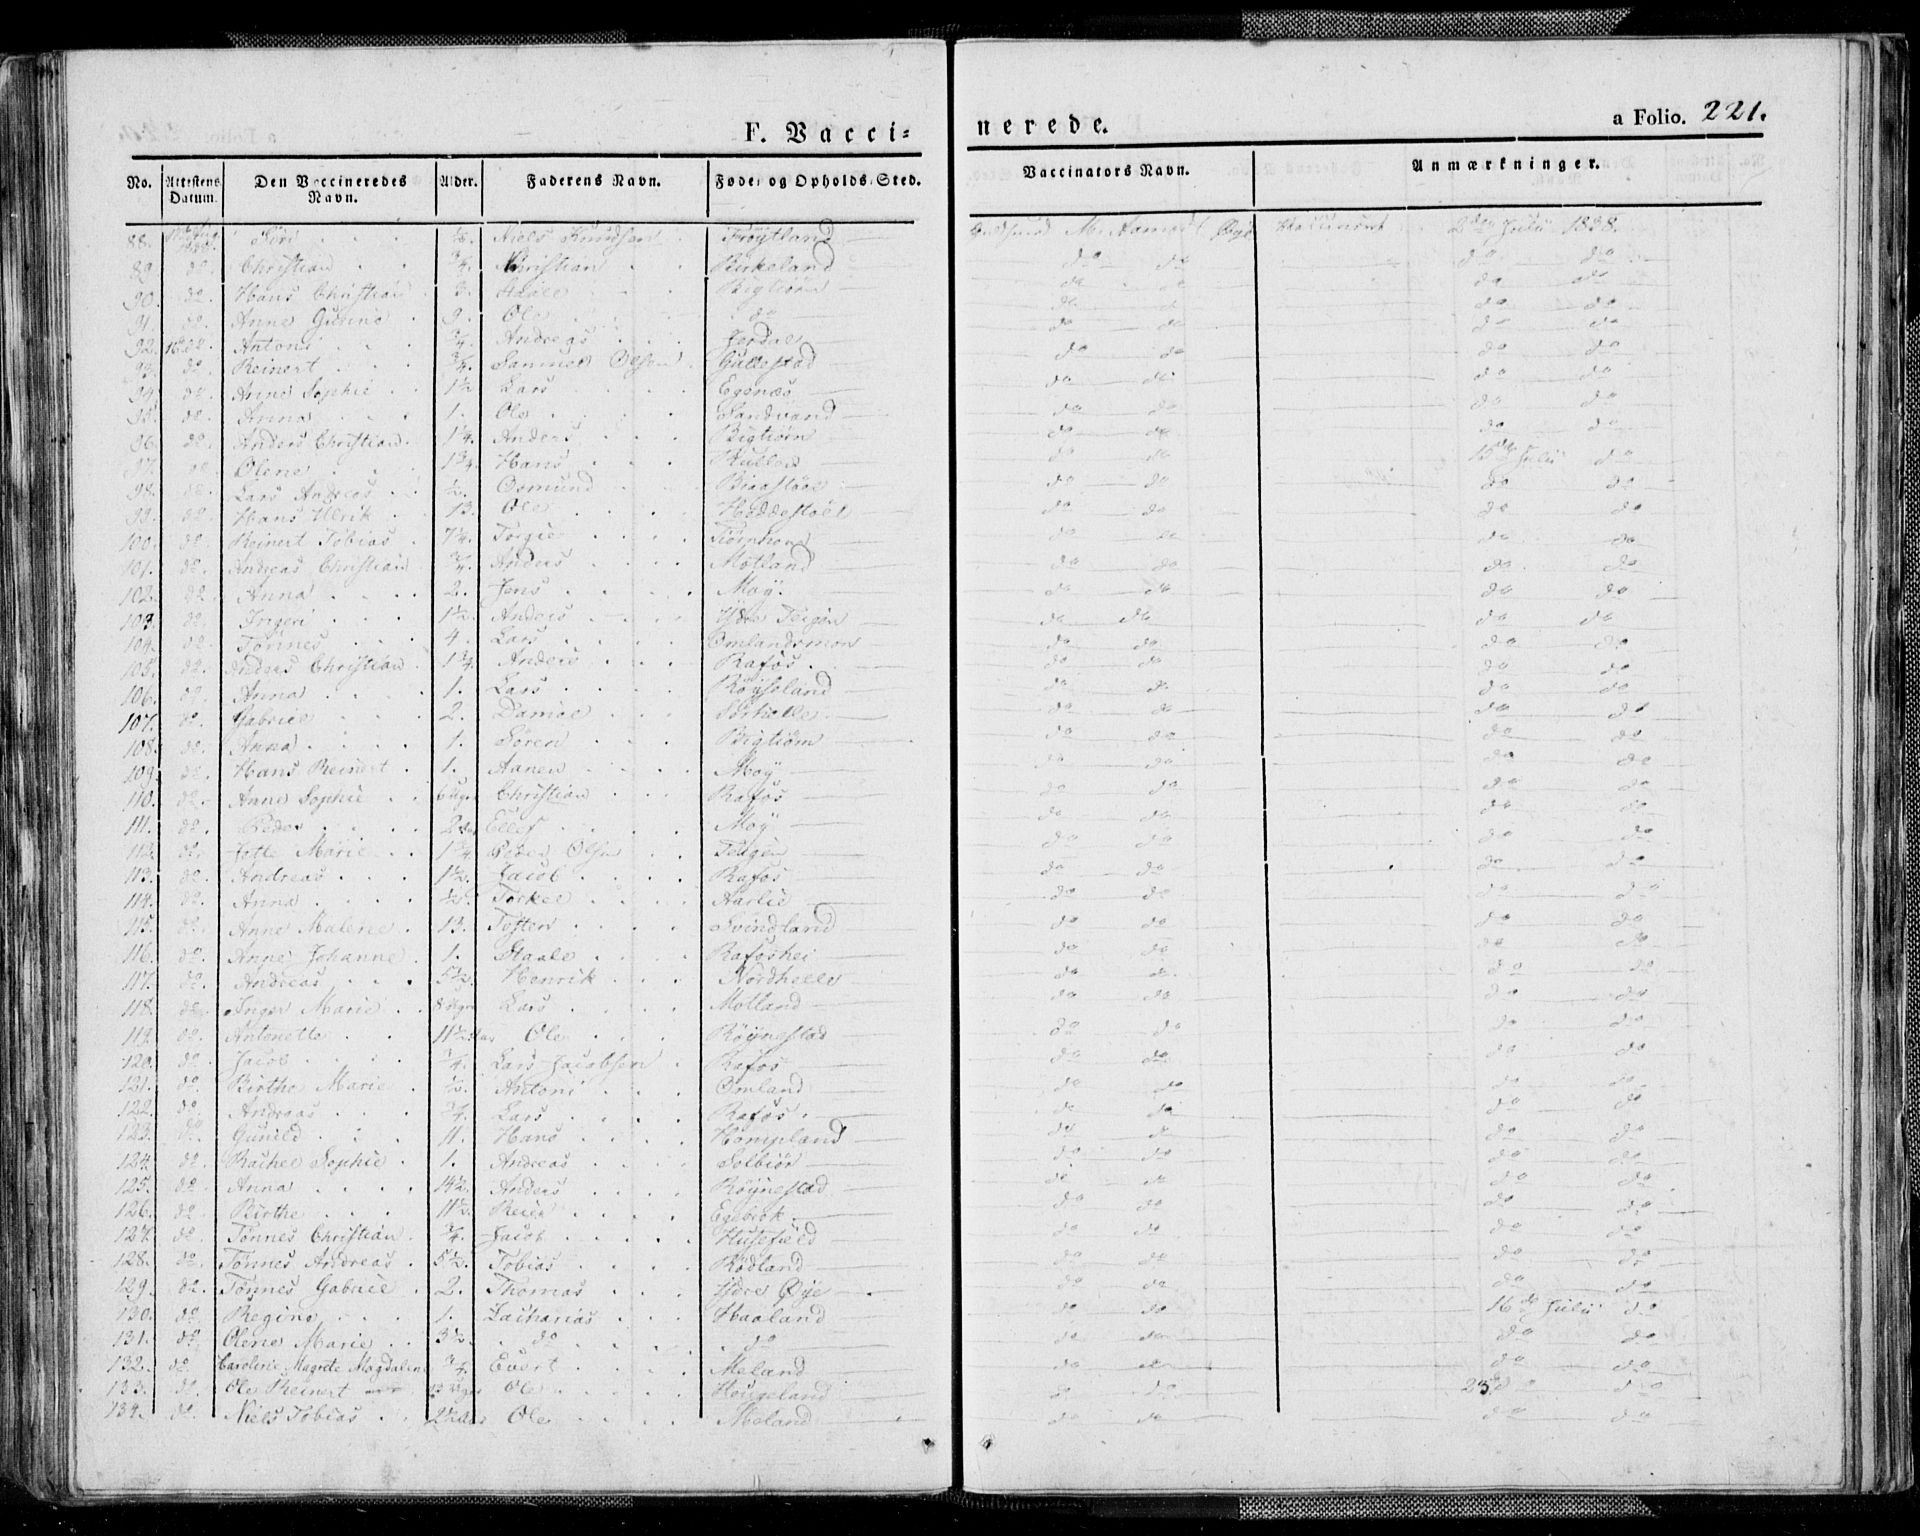 F. Vacci=
nerede. a Folio. 221.
No. Attestens Datum. Den Vaccineredes Navn. Alder. Faderens Navn. Føde- og Opholds-Sted. Vaccinators Navn. Anmærkninger.
88. Siri ½. Niels Knudsen Frøytland 2den Julii 1838.
89 do. Christian ¾. Christian Birkeland do do do do
90. do. Hans Christian 3. Staale Bigtiørn do do do do
91. do. Anne Gurine 9. Ole do do do do do
92. 16 do. Antoni ¾. Andreas Jerdal do do do do
93. do. Reinert ¾. Samuel Olsen Gullestad do do do do
94. do. Anne Sophie 1½ Lars Egenæs do do do do
95. do. Anna 1. Ole Sandvand do do do do
96. do. Anders Christian 1¼. Anders Bigtiørn do do do do
97. do. Olene 1¾. Hans do do 15de Julii do
98. do. Lars Andreas ½. Osmund do do do do
99. do. Hans Ulrik 13. Ole Heddestøel do do do do
100. do. Reinert Tobias 7¼. Torgie do do do do
101. do. Andreas Christian ¾. Anders Motland do do do do
102. do. Anna 2. Jens Møy. do do do do
103. do. Ingeri 1½. Anders Ydre do do do do
104. do. Tønnes 4. Lars Omlandsmon do do do do
105. do. Anders Christian 1¾. Anders Rafos. do do do do
106. do. Anna 1. Lars Røyseland do do do do
107. do. Gabriel 2. Daniel Sørhelle do do do do
108. do. Anna 1. Søren Bigtiørn do do do do
109. do. Hans Reinert 1. Aanen Moy do do do do
110. do. Anne Sophie 6 Uger Christian Rafos do do do do
111. do. Peder 2 Ellef Moy do do do do
112. do. Marie 1¼. Peder Olsen Teigen do do do do
113. do. Andreas 1½. Jacob Rafos do do do do
114. do. Anna Torkel Aarlie do do do do
115. do. Anne Malene 13. Tosten Svindland do do do do
116. do. Anne Johanne 1. Staale Rafoshei do do do do
117. do. Andreas 5½. Henrik Nordhelle do do do do
118. do. Inger Marie 8 Uger Lars Motland do do do do
119. do. Antonette 11½ Ole Røynestad do do do do
120. do. Jacob ¾. Lars Jacobsen Rafos do do do do
121. do. Birthe Marie ½. Antoni Omland do do do do
122. do. Andreas ¾. Lars Rafos. do do do do
123. do. Gunild 11. Hans Hompland do do do do
124. do. Rachel Sophie 1. Andreas Solbiør do do do do
125. do. Anna 14½ Anders Røynestad do do do do
126. do. Birthe 11½. Reier Egebrok do do do do
127. do. Tønnes Christian ¾. Jacob Husefield do do do do
128. do. Tønnes Andreas 5½. Tobias Rødland do do do do
129. do. Tønnes Gabriel 2. Thomas Ydre Øye do do do do
130. do. Regine 1. Zacharias Haaland do do 16de Julii do
131. do. Olene Marie 3½. do do do do do do
132. do. Carolene Magrete Magdalene ¾. Evert Meland do do do do
133. do. Ole Reinert 13 Uger Ole Hougeland do do 23de do do
134. do. Niels Tobias 2½ Ole Meland do do do do